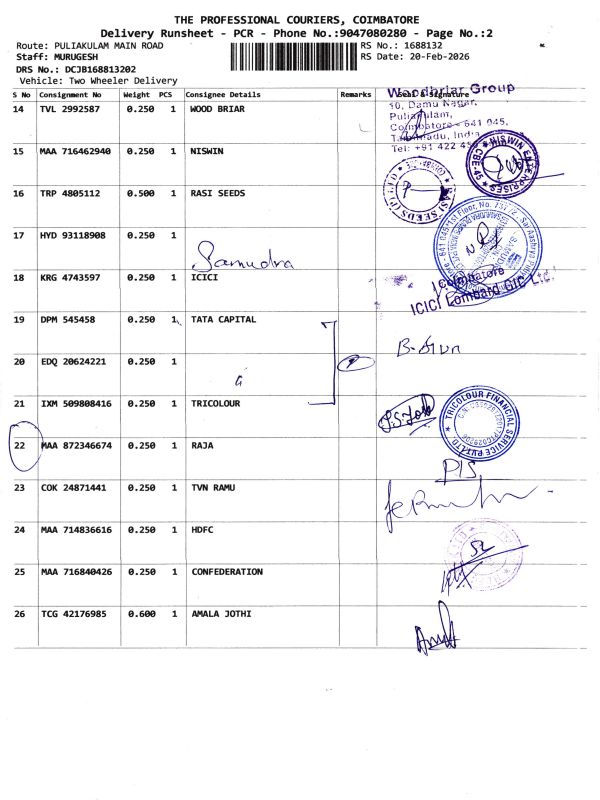 THE PROFESSIONAL COURIERS, COIMBATORE
Delivery Runsheet - PCR - Phone No.:9047080280 - Page No.:2
Route: PULIAKULAM MAIN ROAD
RS No.: 1688132
Staff: MURUGESH
RS Date: 20-Feb-2026
DRS No.: DCJB168813202
Vehicle: Two Wheeler Delivery
S No Consignment No Weight PCS Consignee Details Remarks Seal & Signature
Woodbriar Group
10, Damu Nagar,
Puliakulam,
Coimbatore - 641 045,
Tamilnadu, India
Tel: +91 422
14 TVL 2992587 0.250 1 WOOD BRIAR
15 MAA 716462940 0.250 1 NISWIN
NISWIN ENTERPRISES CBE-45
16 TRP 4805112 0.500 1 RASI SEEDS
RASI SEEDS (P) LTD
17 HYD 93118908 0.250 1
Samudra
18 KRG 4743597 0.250 1 ICICI
Coimbatore
ICICI Lombard GIC Ltd
19 DPM 545458 0.250 1 TATA CAPITAL
20 EDQ 20624221 0.250 1
21 IXM 509808416 0.250 1 TRICOLOUR
TRICOLOUR FINANCIAL SERVICE PVT LTD
22 MAA 872346674 0.250 1 RAJA
23 COK 24871441 0.250 1 TVN RAMU
24 MAA 714836616 0.250 1 HDFC
25 MAA 716840426 0.250 1 CONFEDERATION
26 TCG 42176985 0.600 1 AMALA JOTHI